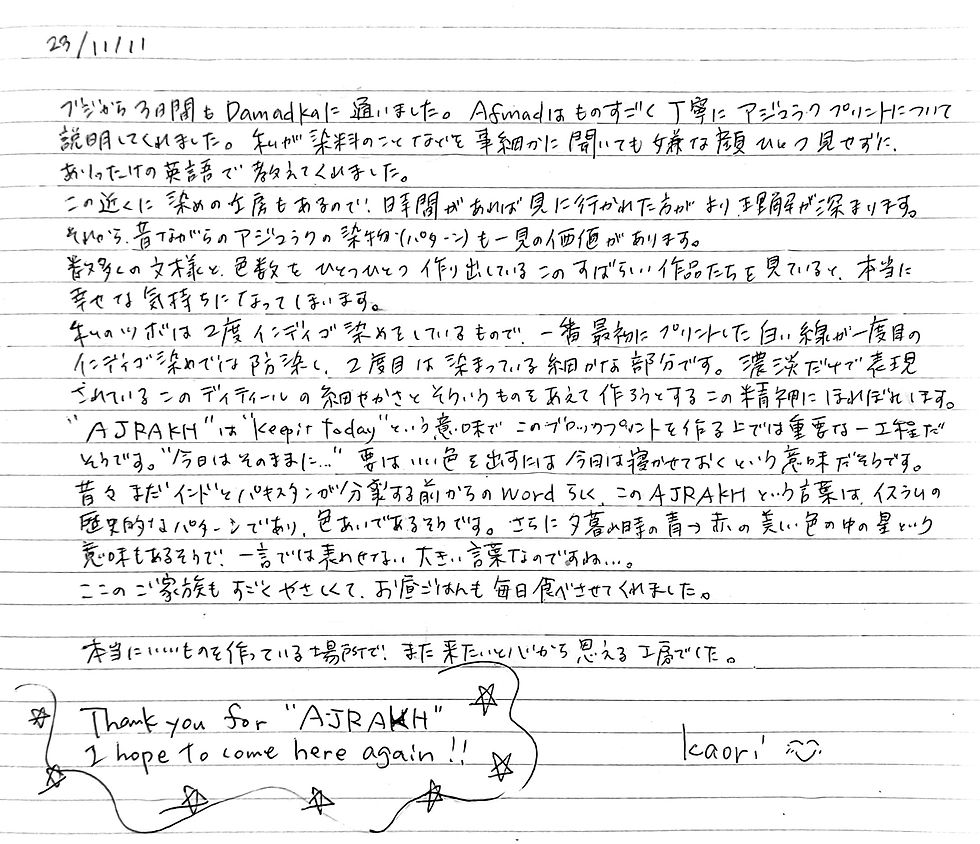 23/11/11
ブジから3日間もDamadkaに通いました。Afmadはものすごく丁寧にアジュラクプリントについて
説明してくれました。私が染料のことなどを事細かに聞いても嫌な顔ひとつ見せずに、
ありったけの英語で教えてくれました。
この近くに染めの工房もあるので、時間があれば見に行かれた方がより理解が深まります。
それから、昔ながらのアジュラクの染物(パターン)も一見の価値があります。
数多くの文様と、色数をひとつひとつ作り出しているこのすばらしい作品たちを見ていると、本当に
幸せな気持ちになってしまいます。
私のツボは2度インディゴ染めをしているもので、一番最初にプリントした白い線が一度目の
インディゴ染めでは防染し、2度目は染まっている細かな部分です。濃淡だけで表現
されているこのディティールの細やかさとそういうものをあえて作ろうとするこの精神にほれぼれします。
"AJRAKH"は"keep it today"という意味でこのブロックプリントを作る上では重要な一工程だ
そうです。"今日はそのままに…"要はいい色を出すには今日は寝かせておくという意味だそうです。
昔々まだインドとパキスタンが分裂する前からのwordらしく、このAJRAKHという言葉は、イスラムの
歴史的なパターンであり、色あいであるそうです。さらに夕暮れ時の青→赤の美しい色の中の星という
意味もあるそうで、一言では表わせない大きい言葉なのですね…。
ここのご家族もすごくやさしくて、お昼ごはんも毎日食べさせてくれました。
本当にいいものを作っている場所で、また来たいと心から思える工房でした。
Thank you for "AJRAKH"
I hope to come here again!!
kaori